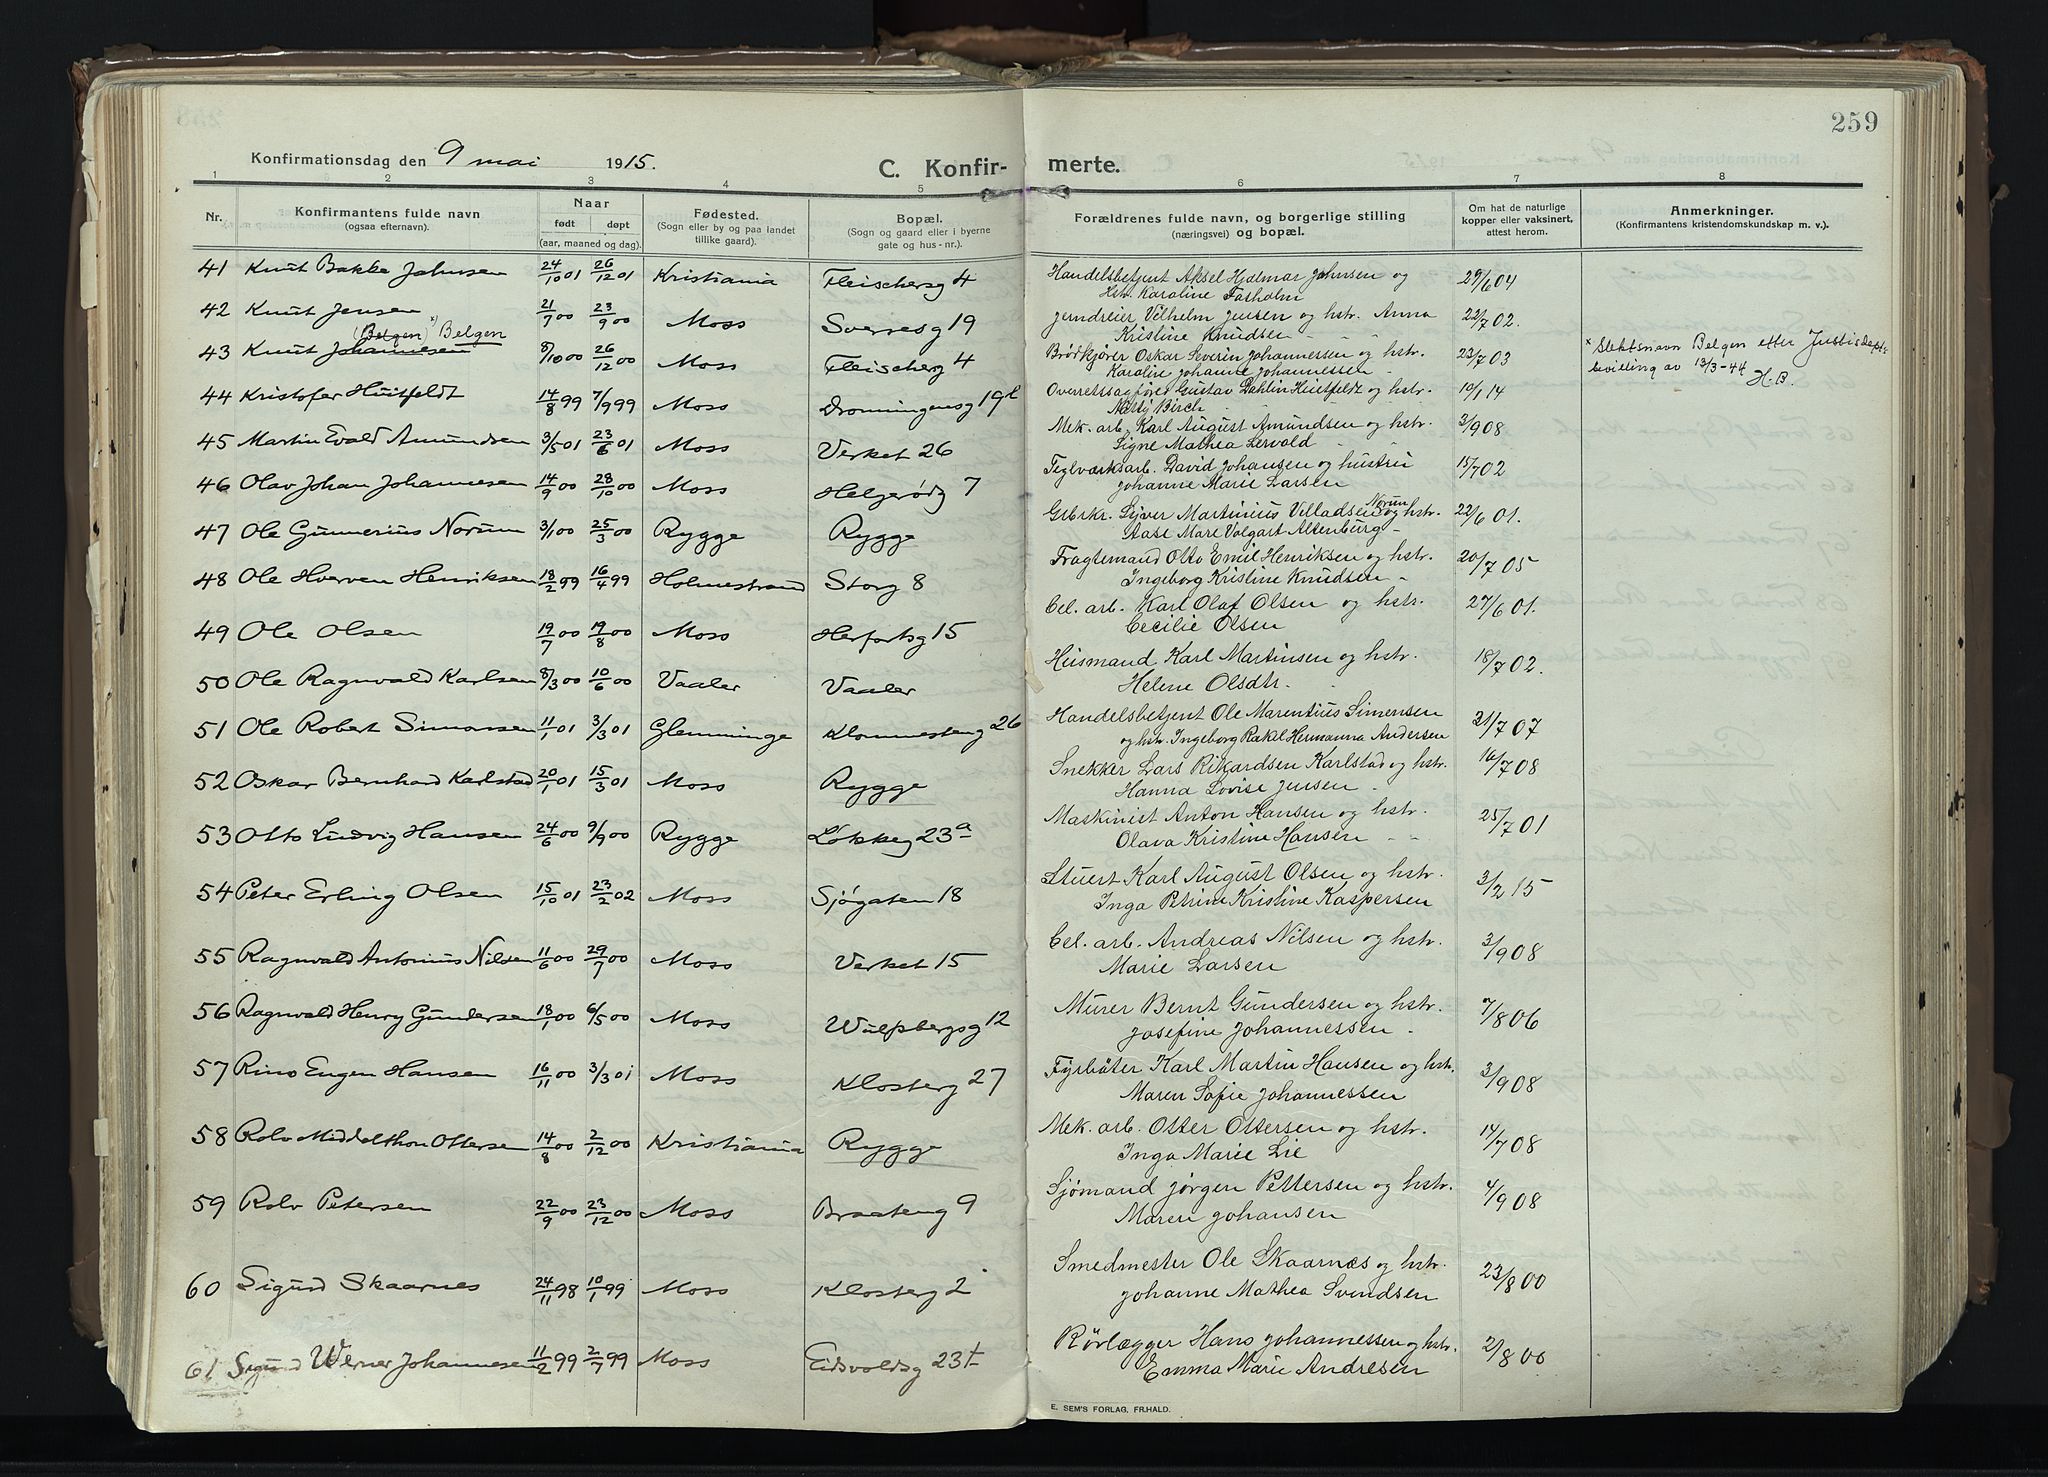 259
Konfirmationsdag den 9 mai 1915.
C. Konfir- merte.
1 2 3 4 5 6 7 8
Nr.
Konfirmantens fulde navn
(ogsaa efternavn).
Naar
født døpt
(aar, maaned og dag).
Fødested.
(Sogn eller by og paa landet
tillike gaard).
Bopæl.
(Sogn og gaard eller i byerne
gate og hus-nr.).
Forældrenes fulde navn, og borgerlige stilling
(næringsvei) og bopæl.
Om hat de naturlige
kopper eller vaksinert,
attest herom.
Anmerkninger.
(Konfirmantens kristendomskundskap m. v.).
41 Knut Bakke Johnsen 24/10 01 26/12 01 Kristiania Fleischersg 4 Handelsbetjent Aksel Hjalmar Johnsen og 29/6 04
Hst. Karoline Fosholm
42 Knut Jensen 21/7 00 23/9 00 Moss Sverresg 19 Jerndreier Vilhelm Jensen og hstr. Anna 22/7 02.
Kristine Knudsen
(Belgen) x) Belgen
43 Knut Johannesen 8/10 00 26/12 00 Moss Fleischerg 4 Brödkjörer Oskar Severin Johannessen og hstr. 23/7 03 x Slektsnavn Belgen etter Justisdepts
Karoline Johanne Johannessen bevilling av 13/3-44 H.B.
44 Kristofer Huitfeldt 14/8 99 7/9 99 Moss Dronningensg 19b Overretssagfører Gustav Dahlin Huitfeldt og hstr. 10/1 14
Birch
45 Martin Evald Amundsen 3/5 01 23/6 01 Moss Verket 26 Mek. arb. Karl August Amundsen og hstr. 3/9 08
Signe Mathea Lervold
46 Olav Johan Johannesen 14/9 00 28/10 00 Moss Helgerödg 7 Teglværksarb. David Johansen og hustru 15/7 02
Johanne Marie Larsen
47 Ole Gunnerius Norum 3/1 00 25/3 00 Rygge Rygge Grbrkr. Syver Martinius Villadsen Norum og hstr. 22/6 01.
Aase Mare Valgart Altenburg
48 Ole Hverven Henriksen 18/2 99 16/4 99 Holmestrand Storg 8 Fragtemand Otto Emil Henriksen og hstr. 20/7 05
Ingeborg Kristine Knudsen
49 Ole Olsen 19/7 00 19/8 00 Moss Herfortsg 15 Cel. arb. Karl Olaf Olsen og hstr. 27/6 01.
Cecilie Olsen
50 Ole Ragnvald Karlsen 8/3 00 10/6 00 Vaaler Vaaler Husmand Karl Martinsen og hstr. 18/7 02.
Helene Olsdtr.
51 Ole Robert Simonsen 11/1 01 3/3 01 Glemminge Klommesteng 26 Handelsbetjent Ole Marentius Simensen 21/7 07
og hstr. Ingeborg Rakel Hermanna Andersen
52 Oskar Bernhard Karlstad 20/1 01 15/3 01 Moss Rygge Snekker Lars Rikardsen Karlstad og hstr. 16/7 08
Hanna Lovise Jensen
53 Otto Ludvig Hansen 24/6 00 9/9 00 Rygge Løkkeg 23a Maskinist Anton Hansen og hstr. 25/7 01
Olava Kristine Hansen
54 Peter Erling Olsen 15/10 01 23/2 02 Moss Sjøgaten 18 Stuert Karl August Olsen og hstr. 3/2 15
Inga Petrine Kristine Kaspersen
55 Ragnvald Antonius Nilsen 11/6 00 29/7 00 Moss Verket 15 Cel. arb. Andreas Nilsen og hstr. 3/9 08
Marie Larsen
56 Ragnvald Henry Gundersen 18/1 00 6/5 00 Moss Wulfsbergsg 12 Murer Bernt Gundersen og hstr. 7/8 06
Josefine Johannessen
57 Rino Eugen Hansen 16/11 00 3/3 01 Moss Klosterg 27 Fyrbøter Karl Martin Hansen og hstr. 3/9 08
Maren Sofie Johannessen
58 Rolv Middelthon Ottersen 14/8 00 2/12 00 Kristiania Rygge Mek. arb. Otter Ottersen og hstr. 14/7 08
Inga Marie Lie
59 Rolv Petersen 22/9 00 23/12 00 Moss Braateng 9 Sjømand Jørgen Pettersen og hstr. 4/9 08
Maren Johansen
60 Sigurd Skaarnes 24/11 98 10/1 99 Moss Klosterg 2 Smedmester Ole Skaarnæs og hstr. 23/8 00
Johanne Mathea Svendsen
61 Sigurd Werner Johannesen 11/2 99 2/7 99 Moss Eidsvoldsg 23 Rørlægger Hans Johannessen og hstr. 2/8 00
Emma Marie Andresen
E. SEM'S FORLAG, FR.HALD.